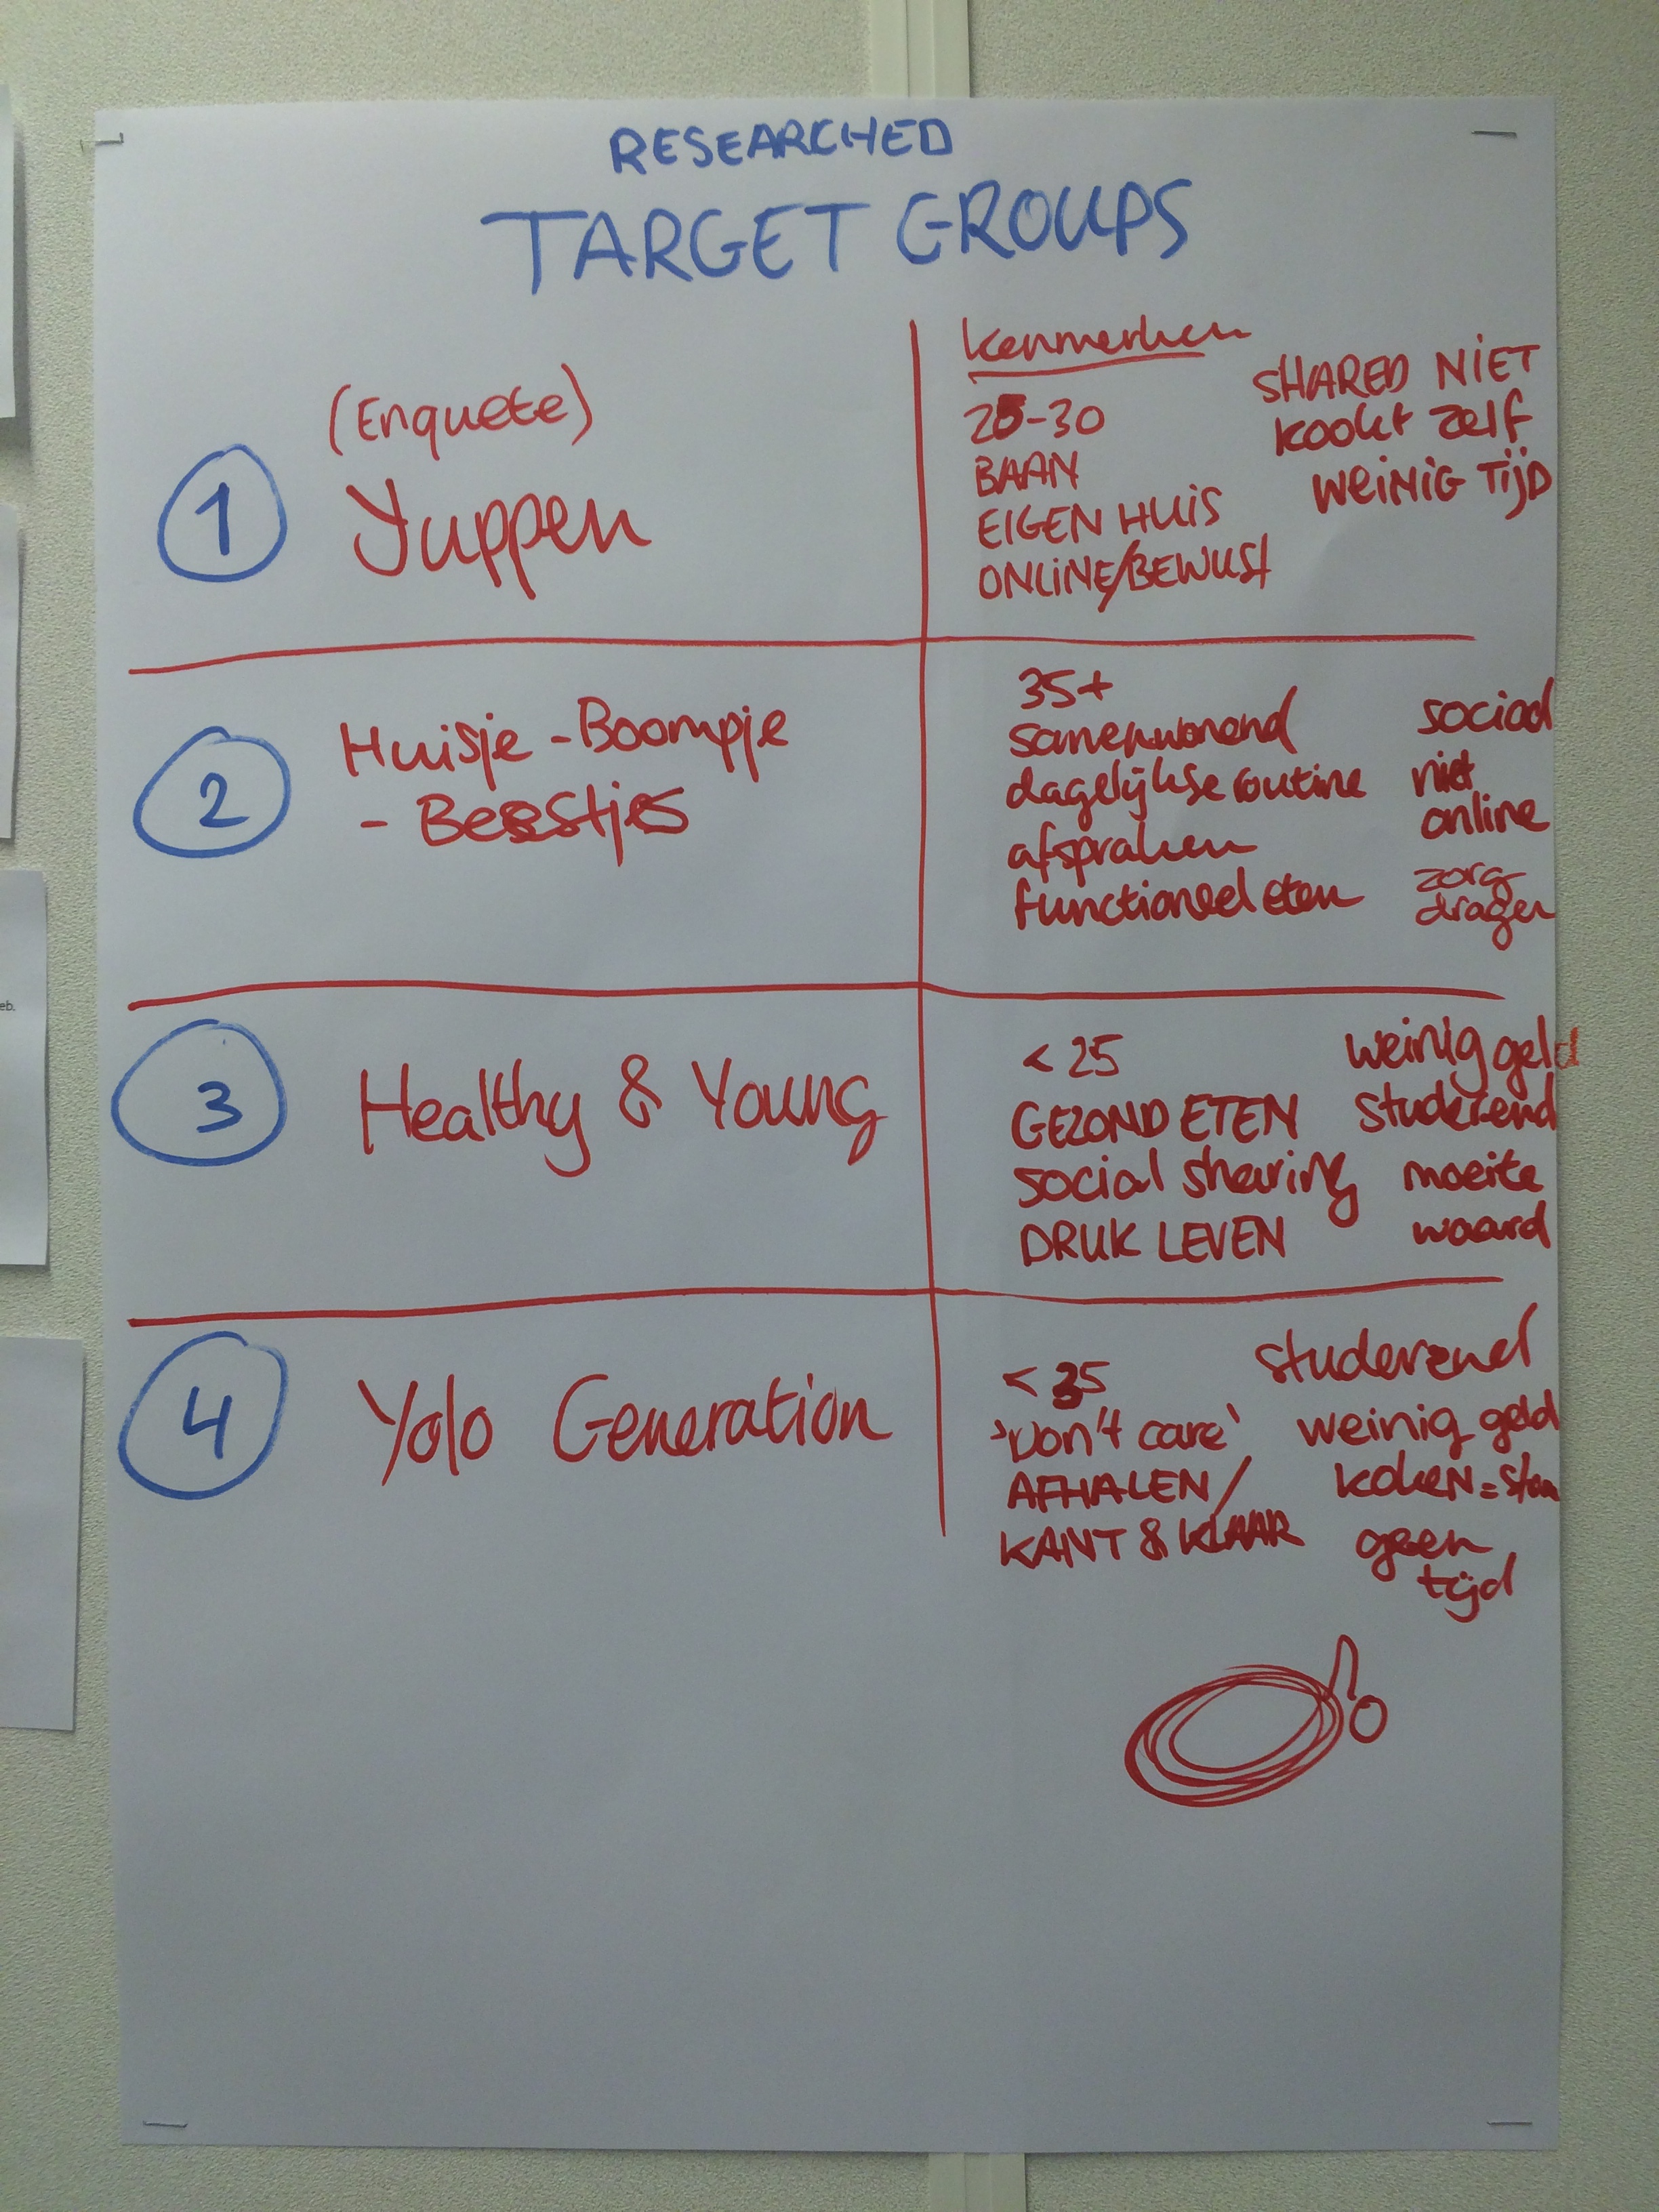 RESEARCHED
TARGET GROUPS
kenmerken
(Enquete)
1
Yuppen
25-30
BAAN
EIGEN HUIS
ONLINE/BEWUST
SHARED NIET
kookt zelf
WEINIG TIJD
2
Huisje-Boompje
- Beestjes
35+
samenwonend
dagelijkse routine
afspraken
functioneel eten
sociaal
niet
online
zorg
drager
3
Healthy & Young
< 25
GEZOND ETEN
social sharing
DRUK LEVEN
weinig geld
studerend
moeite
waard
4
Yolo Generation
< 35
'Don't care'
AFHALEN/
KANT & KLAAR
studerend
weinig geld
KOKEN =
geen
tijd
eb.